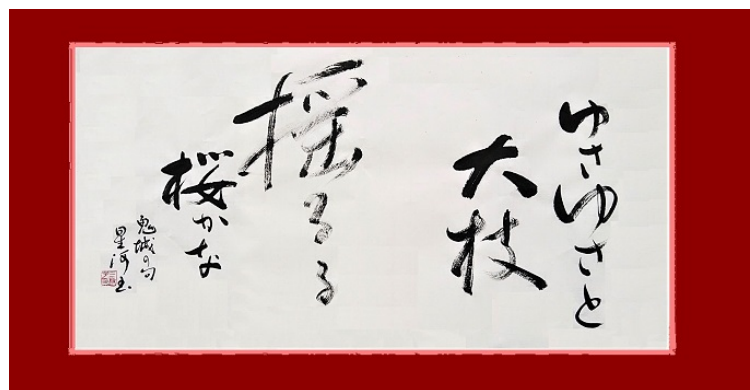 ゆさゆさと
大枝
揺るる
桜かな
鬼城の句
星河